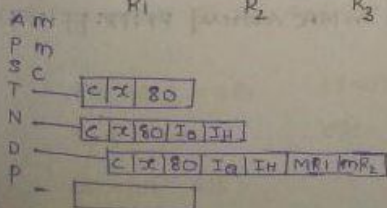 R1 R2 R3
A m
P m
S C
T — C | x | 80
N — C | x | 80 | IQ | IH
D — C | x | 80 | IQ | IH | MR1 | mR2
P —